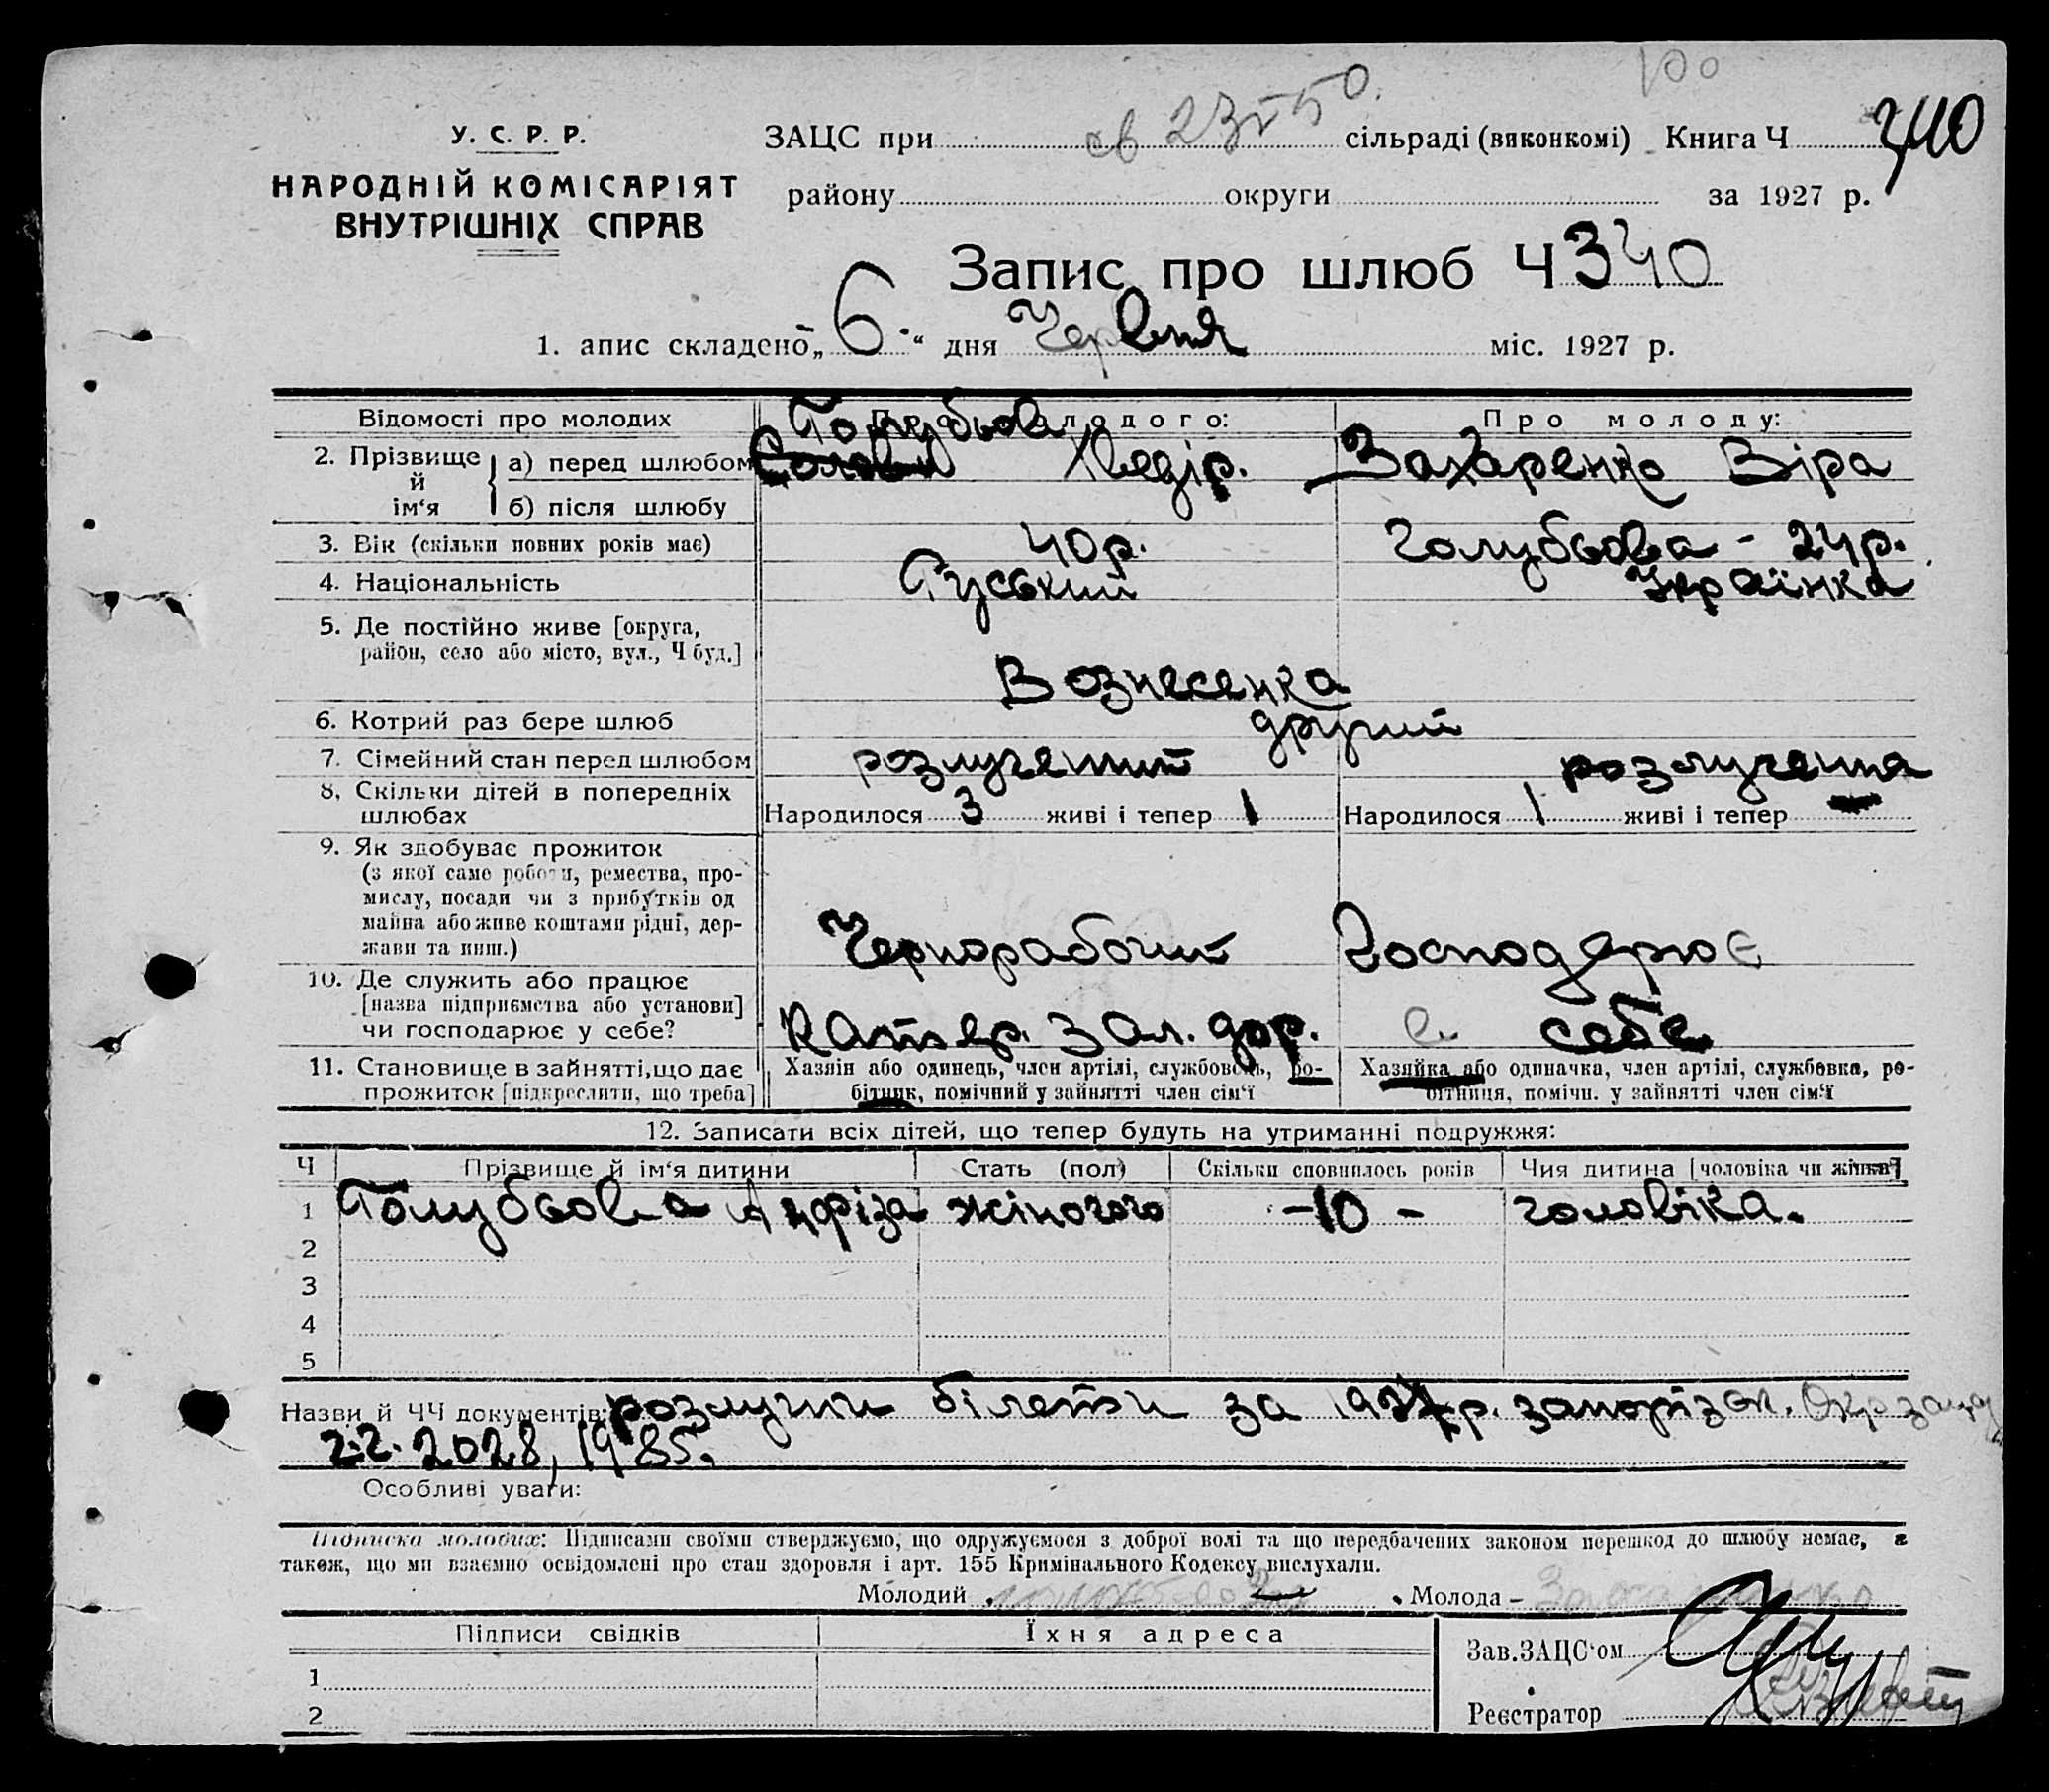 100
У. С. Р. Р.
НАРОДНІЙ КОМІСАРІЯТ
ВНУТРІШНІХ СПРАВ
ЗАЦС при св 23 V 50. сільраді (виконкомі) Книга Ч 340
району округи за 1927 р.
Запис про шлюб Ч 340
1. апис складено „6“ дня Червня міс. 1927 р.
Відомості про молодих Про молодого: Про молоду:
Голубьов
2. Прізвище й ім‘я а) перед шлюбом Хведір. Захаренко Віра
б) після шлюбу
3. Вік (скільки повних років має) 40р. Голубьова - 24р.
4. Національність Руський Українка
5. Де постійно живе [округа,
район, село або місто, вул., Ч буд.]
Вознесенка
6. Котрий раз бере шлюб другий
7. Сімейний стан перед шлюбом розлучений розлучения
8. Скільки дітей в попередніх
шлюбах Народилося 3 живі і тепер 1 Народилося 1 живі і тепер —
9. Як здобуває прожиток
(з якої саме роботи, ремества, про-
мислу, посади чи з прибутків од
майна або живе коштами рідні, дер-
жави та инш.) Чернорабочий Господарює
10. Де служить або працює
[назва підприємства або установи]
чи господарює у себе? Катер. Зал. дор. в себе
11. Становище в зайнятті, що дає Хазяін або одинець, член артілі, службовець, ро- Хазяйка або одиначка, член артілі, службовка, ро-
прожиток [підкреслити, що треба] бітник, помічний у зайнятті член сім‘ї бітниця, помічн. у зайнятті член сім‘ї
12. Записати всіх дітей, що тепер будуть на утриманні подружжя:
Ч Прізвище й ім‘я дитини Стать (пол) Скільки сповнилось років Чия дитина [чоловіка чи жінки]
1 Голубьова Анфіза жіночого -10- чоловіка.
2
3
4
5
Назви й ЧЧ документів: розлучни білети за 1927р. запорізьк. Окрзагсу
2028, 1985.
Особливі уваги:
Підписка молодих: Підписами своїми стверджуємо, що одружуємося з доброї волі та що передбачених законом перешкод до шлюбу немає, а
також, що ми взаємно освідомлені про стан здоровля і арт. 155 Кримінального Кодексу вислухали.
Молодий Молода - Захаренко
Підписи свідків Їхня адреса
Зав. ЗАЦС‘ом
1
2
Реєстратор